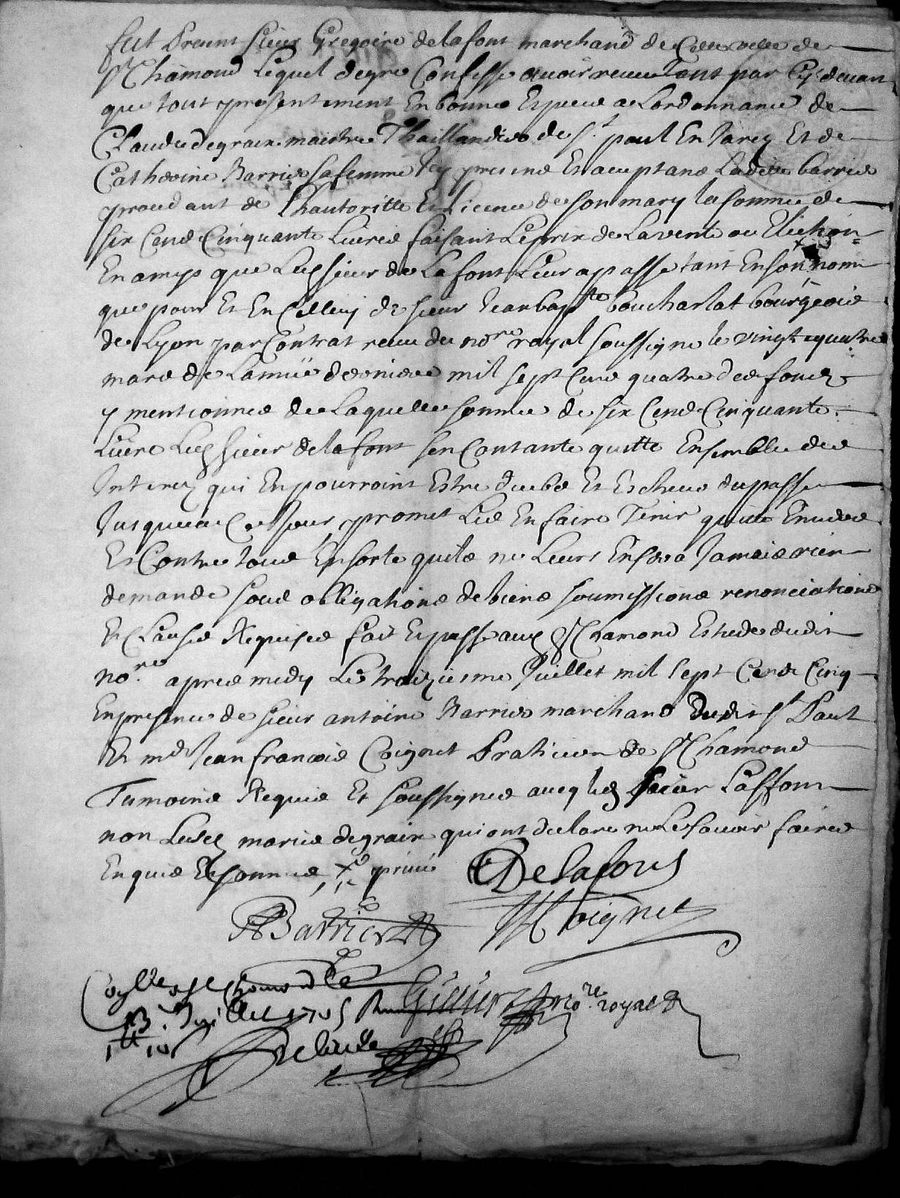 fut Present sieur Gregoire delafont marchand de cette ville de
St Chamond lequel de gre Confesse avoir receu tant par cy devant
que tout presentement En bonne Espece a Lordonnance de
Claude degrain maistre Thaillandier de St paul En Jarez Et de
Catherine Barrier sa femme Icy presens Et aceptans Ladite barrier
procedant de Lhautoritte Et licence de son mary la somme de
six Cens Cinquante Livres faisant Le prix de La vente ou Elechon
En amys que Led sieur de La font Leur a passe tant En son nom
que pour Et En Celluy de sieur Jean bapte boucharlat bourgeois
de Lyon par Contrat receu du nore royal soussigne le vingt quatre
mars de Lannee derniere mil sept Cens quatre des fonds
y mentionnes de Laquelle somme de six Cens Cinquante
Livres Led sieur de la font sen Contante quitte Ensemble des
Interez qui En pourroint Estre deubs Et Escheus du passe
Jusques a Ce Jour promet Les En faire Tenir quitte Envers
Et Contre tous En sorte quils ne Leurs En sera Jamais rien
demande sous obligations de biens soumissions renonciations
Et Clauses Requises fait Et passe aud St Chamond Estude dudit
nore apres midy Le treiziesme Juillet mil sept Cens Cinq
En presence de sieur antoine Barrier marchand dudit St Paul
Et md Jean francois Coignet Praticien de St Chamond
Tesmoins Requis Et soussignes avec led sieur Laffont
non Lesd maries degrain qui ont declare ne Le scavoir faire
Enquis Et sommes
Delafont
Barrier
Coignet
St Chamond le
13e Juillet 1705
nore royal